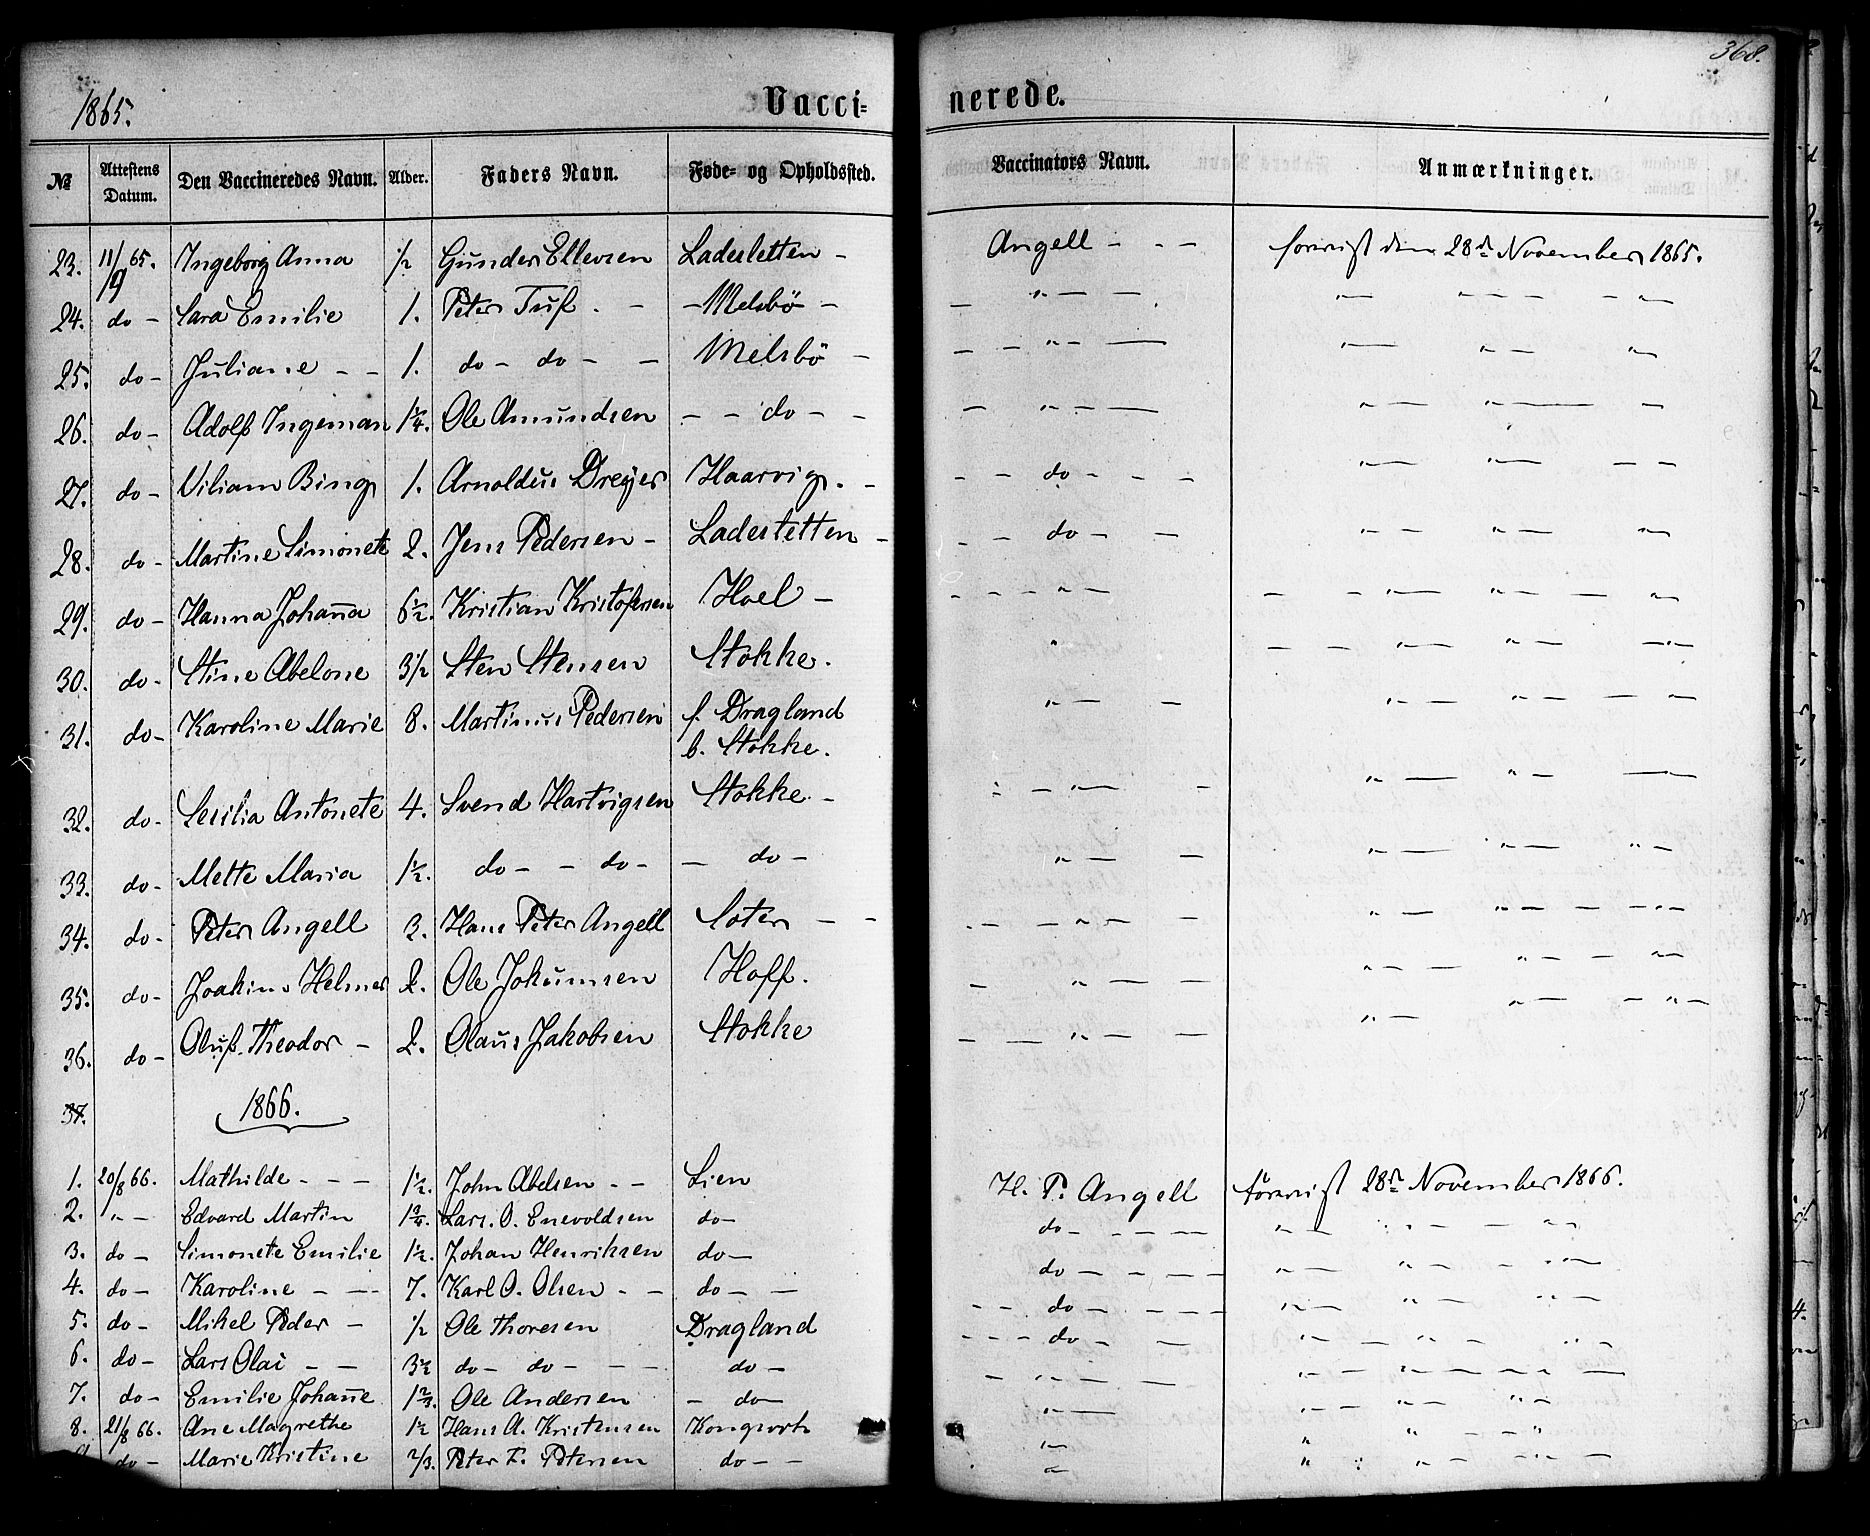 368.
1865. Vacci= nerede.
№ Attestens Datum. Den Vaccineredes Navn. Alder. Faders Navn. Føde- og Opholdssted. Vaccinators Navn. Anmærkninger.
23. 11/9 65. Ingeborg Anna 1/2 Gunder Ellevsen Ladesletten - Angell - - - forevist den 28de November 1865.
24. do - Sara Emilie 1. Peter Tuß - - Melsbö - - " - -
25. do - Juliane - - 1. do - do - - Melsbö - - - " -
26. do - Adolf Ingeman 1 1/4. Ole Amundsen - - do - - - " - -
27. do - Viliam Bing 1. Arnoldus Dreyer Haarvig. - - - do - - -
28. do - Martine Simonete 2. Jens Pedersen - Ladestetten - - - do - -
29. do - Hanna Johanna 6 1/2. Kristian Kristofersen Hoel - - - - " -
30. do - Stine Abelone 3 1/2 Sten Stensen Stokke. "
31. do - Karoline Marie 8. Martinus Pedersen f. Dragland " - -
b. Stokke.
32. do - Cecilia Antonete 4. Svend Hartvigsen Stokke - - - " - -
33. do - Mette Maria 1 1/2. do - - do - - do - " - -
34. do - Peter Angell 3. Hans Peter Angell Soter - - - - " - -
35. do - Joakim Helmer 2. Ole Jokumsen Hoff. - " - - -
36. do - Oluf Theodor - 2. Olaus Jakobsen Stokke - - " - -
37. 1866.
1. 20/8 66. Mathilde - - - 1 1/2. John Abelsen - - Lien H. P. Angell forevist 28de November 1866.
2. " - Edvard Martin 1 3/4. Lars. O. Enevoldsen do - do - - - -
3. do - Simonete Emilie 1 1/2. Johan Henriksen do - do - - - -
4. do - Karoline - - - 7. Karl O. Olsen - - do - - - - do - - - -
5. do - Mikel Peder - 1/2 Ole Thoresen Dragland - - - do - -
6. do - Lars Olai - - 3 1/2 do - do - - - do - - " - - -
7. do - Emilie Johanne 1 2/3. Ole Andersen - do - " - -
8. 21/8 66. Ane Magrethe 1 1/2 Hans A. Kristensen " -
do - Marie Kristine 2/3. Peter E. Petersen do - - "